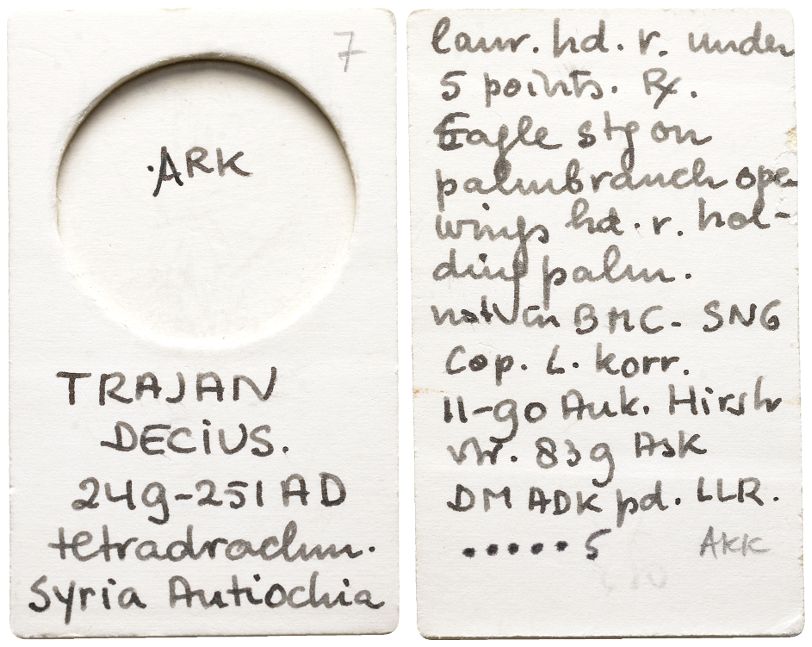 7
.ARK
TRAJAN
DECIUS.
249-251 AD
tetradrachm.
Syria Antiochia
laur. hd. r. under
5 points. Rx.
Eagle stg on
palmbranch ope
wings hd. r. hol-
ding palm.
not in BMC - SNG
Cop. L. korr.
11-90 Auk. Hirsh
nr. 839 Ask
DM ADK pd. LLR.
••••• 5 AKK